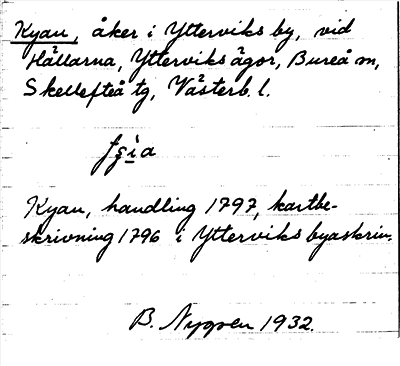 Kyan, åker i Ytterviks by, vid
Hällarna, Ytterviks ägor, Bureå m,
Skellefteå tg, Västerb. l.
Kyan, handling 1797, kartbe-
skrivning 1796 i Ytterviks byaskrin.
B. Nygren 1932.